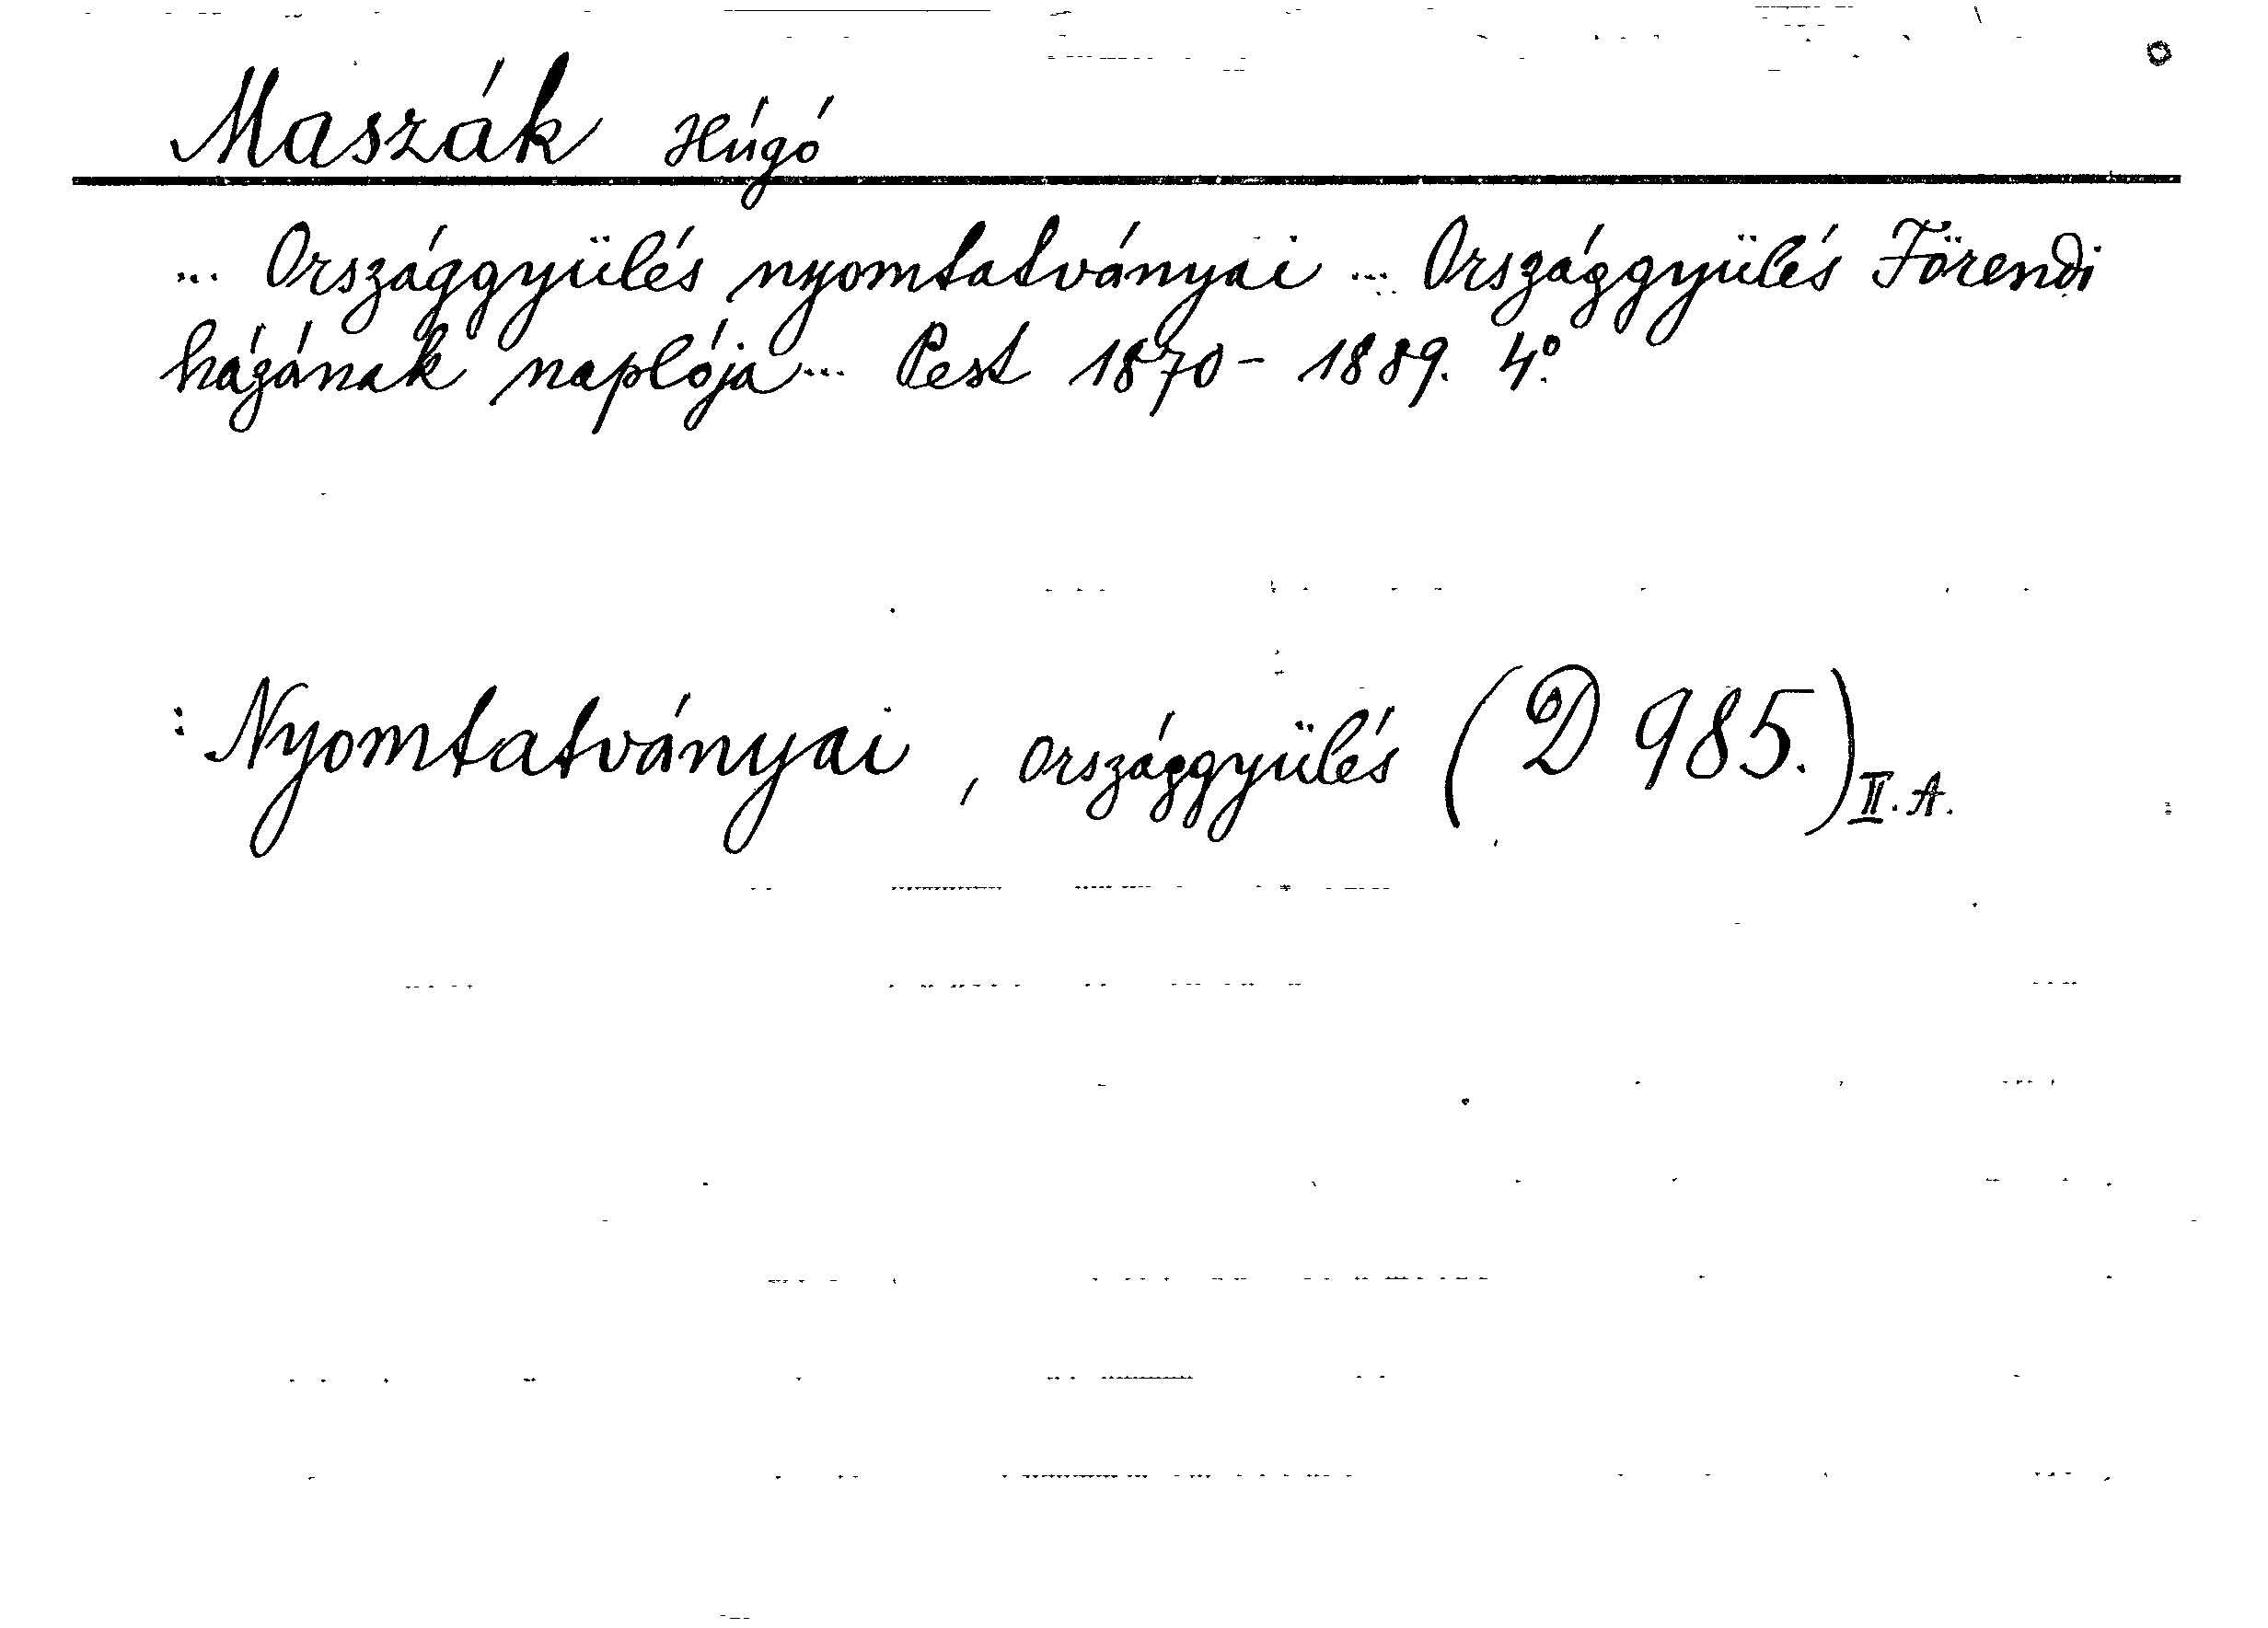 Maszák Húgó
... Országgyülés nyomtatványai ... Országgyülés Förendi
házának naplója ... Pest 1870-1889. 4º
: Nyomtatványai, országgyülés (D 985.) II. A.